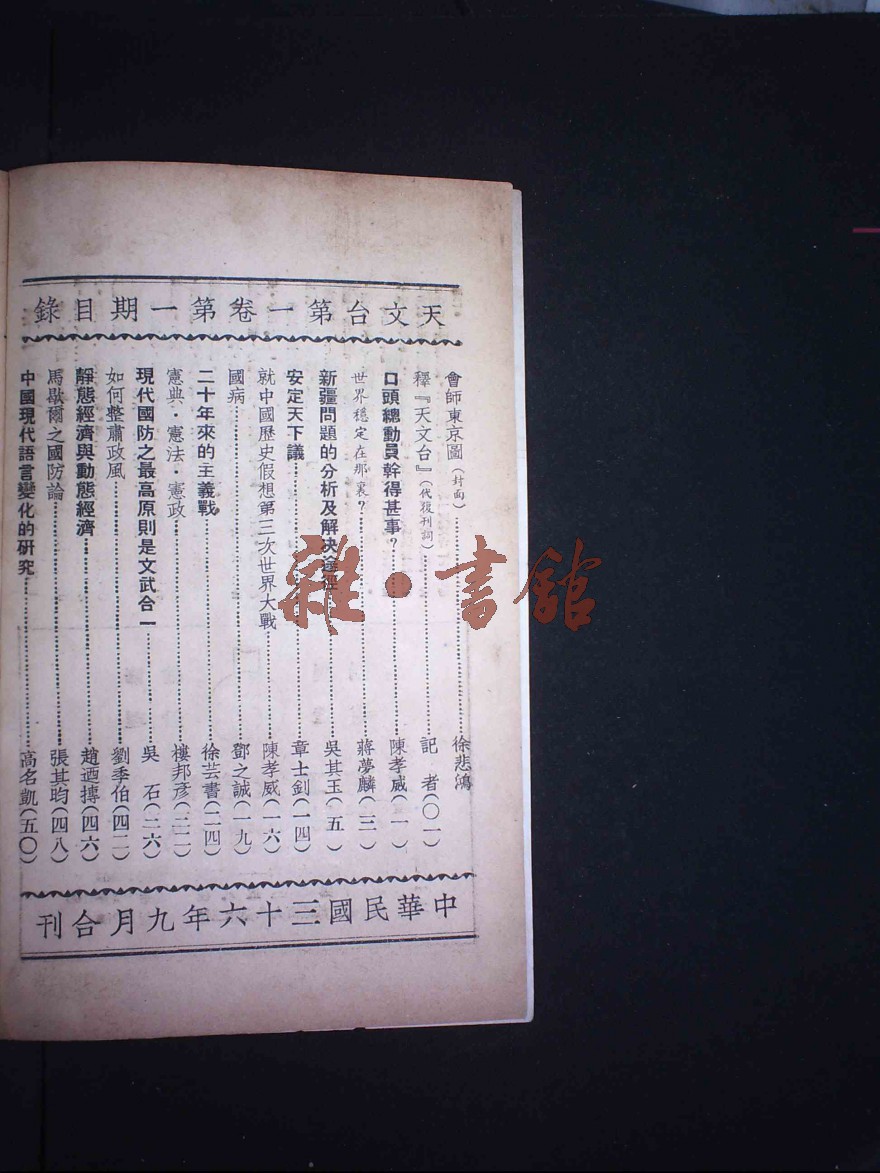 天文台第一卷第一期目錄
會師東京圖(封面)…………徐悲鴻
釋『天文台』(代復刊詞)…………記者(〇一)
口頭總動員幹得甚事?…………陳孝威(一)
世界穩定在那裏?…………蔣夢麟(三)
新疆問題的分析及解決途徑…………吳其玉(五)
安定天下議…………章士釗(一四)
就中國歷史假想第三次世界大戰…………陳孝威(一六)
國病…………鄧之誠(一九)
二十年來的主義戰…………徐芸書(二四)
憲典·憲法·憲政…………樓邦彥(二二)
現代國防之最高原則是文武合一…………吳石(二六)
如何整肅政風…………劉季伯(四二)
靜態經濟與動態經濟…………趙迺摶(四六)
馬歇爾之國防論…………張其昀(四八)
中國現代語言變化的研究…………高名凱(五〇)
中華民國三十六年九月合刊
雜·書館